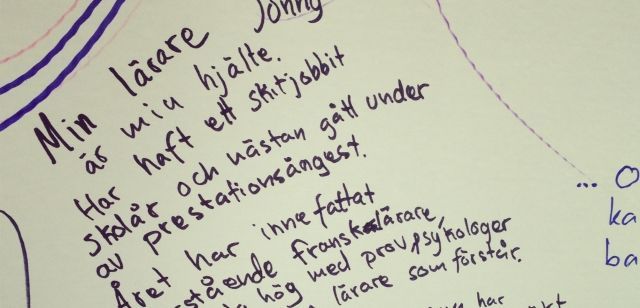 Min lärare Jonny
är min hjälte.
Har haft ett skitjobbit
skolår och nästan gått under
av prestationsångest.
Året har innefattat
stående fransklärare,
hög med prov, psykologer
lärare som förstår.
har
... O
ka
ba